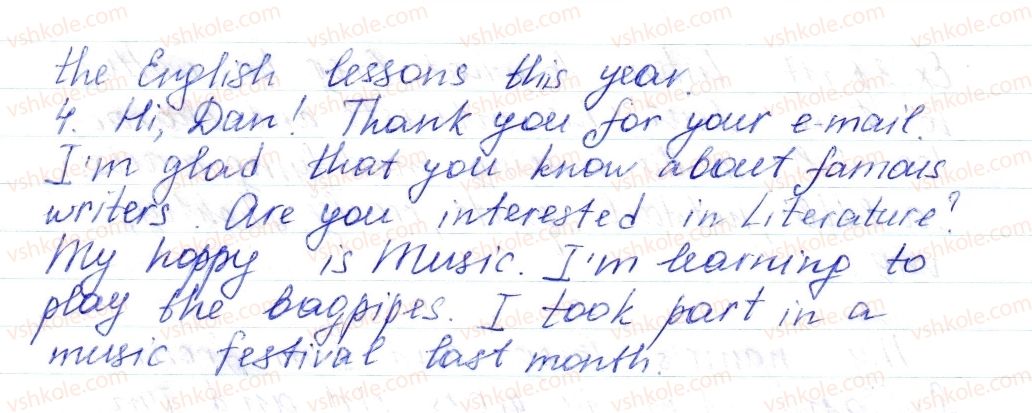 the English lessons this year.
4. Hi, Dan! Thank you for your e-mail.
I'm glad that you know about famous
writers. Are you interested in Literature?
My hoppy is Music. I'm learning to
play the bagpipes. I took part in a
music festival last month.